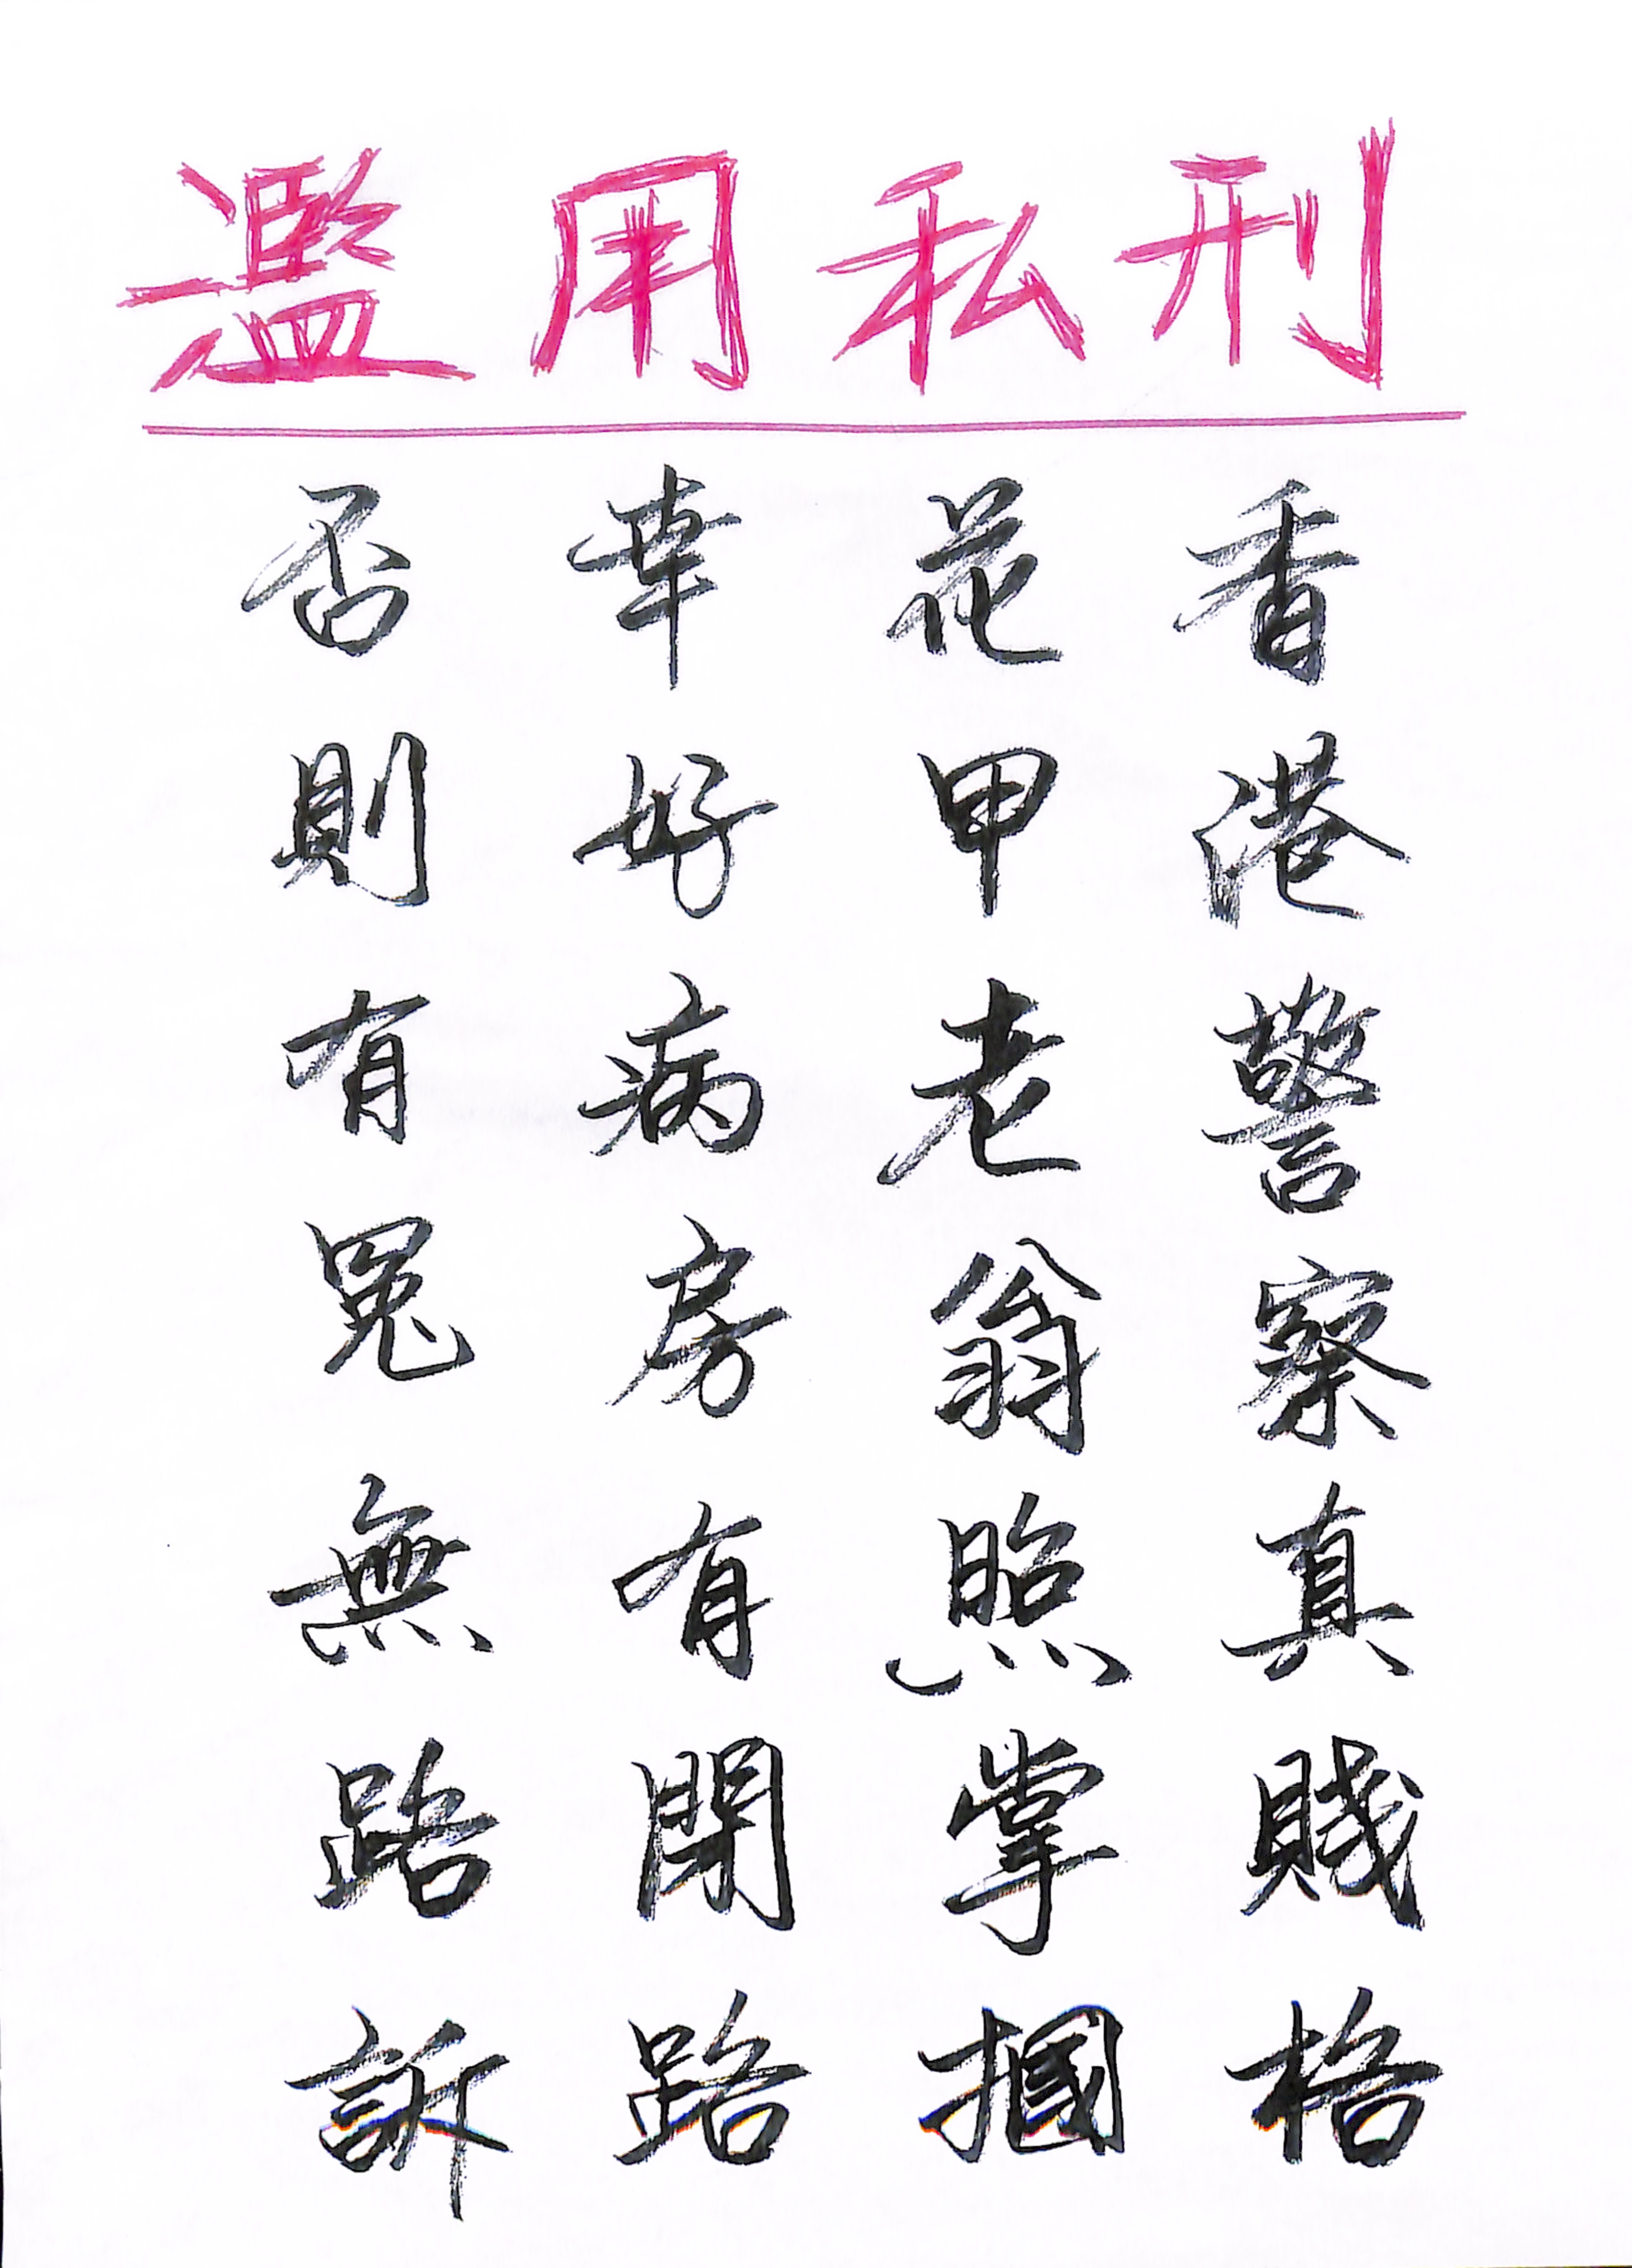 濫用私刑
香港警察真賤格
花甲老翁照掌摑
幸好病房有閉路
否則有冤無路訴